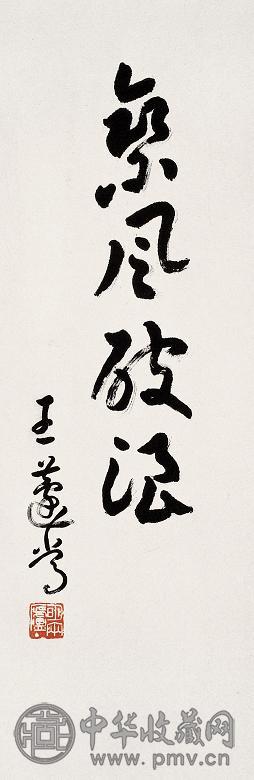 乘風破浪
王蘧常
中华收藏网
www.pmv.cn